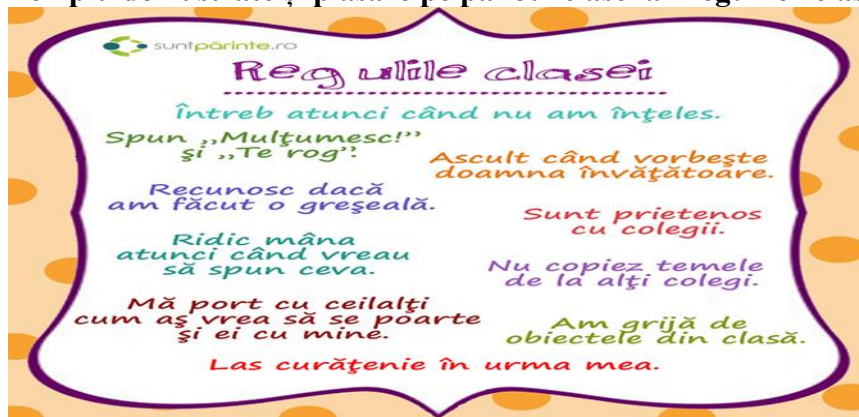 suntpărinte.ro
Regulile clasei
Întreb atunci când nu am înţeles.
Spun ,,Mulţumesc!”
şi ,,Te rog”!
Ascult când vorbeşte
doamna învăţătoare.
Recunosc dacă
am făcut o greşeală.
Sunt prietenos
cu colegii.
Ridic mâna
atunci când vreau
să spun ceva.
Nu copiez temele
de la alţi colegi.
Mă port cu ceilalţi
cum aş vrea să se poarte
şi ei cu mine.
Am grijă de
obiectele din clasă.
Las curăţenie în urma mea.